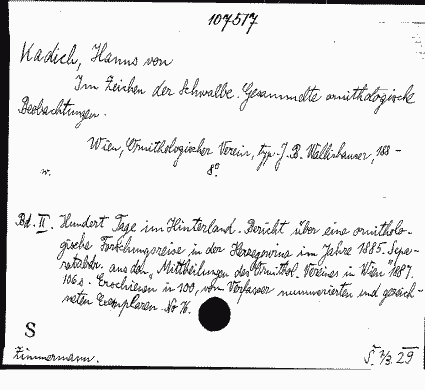 107517
Kadich, Hanns von
Im Zeichen der Schwalbe. Gesammelte ornithologische
Beobachtungen.
Wien, Ornithologischer Verein, typ. J. B. Wallishauser, 188 -
w. 8°.
Bd. II. Hundert Tage im Hinterland. Bericht über eine ornitholo-
gische Forschungsreise in der Herzegowina im Jahre 1885. Sepa-
ratabdr. aus den „Mittheilungen des Ornithol. Vereines in Wien" 1887.
106 s. Erschienen in 100, vom Verfasser nummerierten und gezeich-
neten Exemplaren. No 76.
S
Zimmermann. S. 2/3. 29